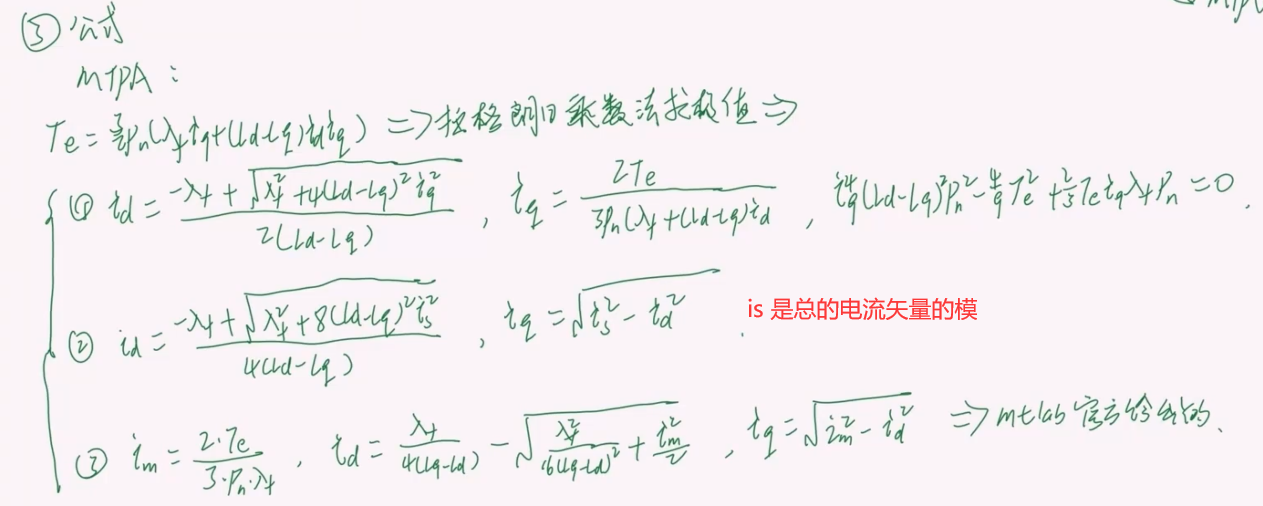 ③ 公式
MTPA：
Te = 3/2 Pn(λf iq + (Ld-Lq) id iq) => 拉格朗日乘数法找极值 =>
① id = (-λf + √(λf² + 4(Ld-Lq)² iq²)) / (2(Ld-Lq)) , iq = 2Te / (3Pn(λf + (Ld-Lq) id) , iq⁴(Ld-Lq)²Pn² - 4/9 Te² + 2/3 Te iq λf Pn = 0 .
② id = (-λf + √(λf² + 8(Ld-Lq)² is²)) / (4(Ld-Lq)) , iq = √(is² - id²) . is 是总的电流矢量的模
③ im = 2·Te / (3·Pn·λf) , id = λf / (4(Lq-Ld)) - √(λf² / (16(Lq-Ld)²) + im²/2) , iq = √(im² - id²) => mtlab 官方给出的、